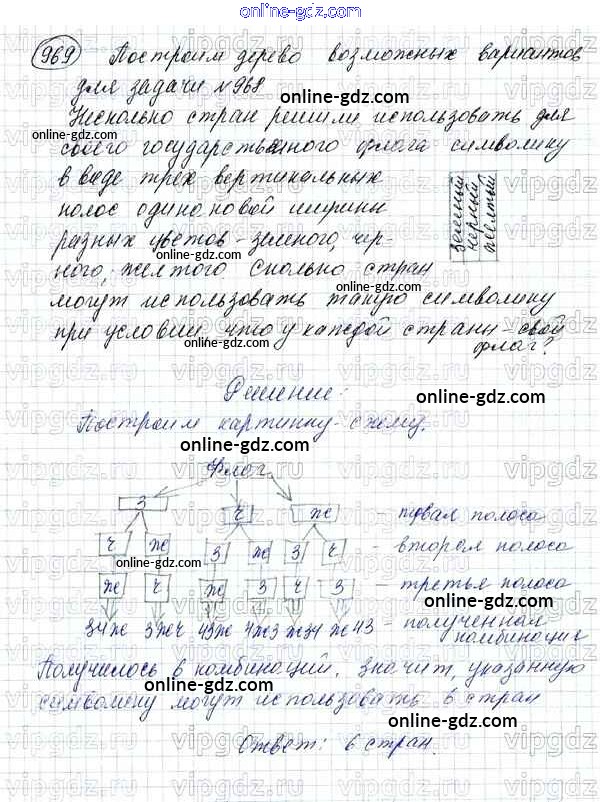 online-gdz.com
969 Построим дерево возможных вариантов
для задачи №968
online-gdz.com
Несколько стран решили использовать для
online-gdz.com
своего государственного флага символику
в виде трех вертикальных
полос одинаковой ширины
разных цветов - зеленого, чер-
ного, желтого Сколько стран
могут использовать такую символику
при условии что у каждой страны - свой
флаг?
зеленый
черный
желтый
online-gdz.com
online-gdz.com
online-gdz.com
Решение:
online-gdz.com
Построим картинку-схему.
online-gdz.com
Флаг
З Ч Ж - первая полоса
Ч Ж З Ж З Ч - вторая полоса
Ж Ч Ж З Ч З - третья полоса
online-gdz.com
ЗЧЖ ЗЖЧ ЧЗЖ ЧЖЗ ЖЗЧ ЖЧЗ - полученная
комбинация
online-gdz.com
Получилось 6 комбинаций. Значит, указанную
online-gdz.com
символику могут использовать 6 стран
online-gdz.com
Ответ: 6 стран.
online-gdz.com
vipgdz.ru